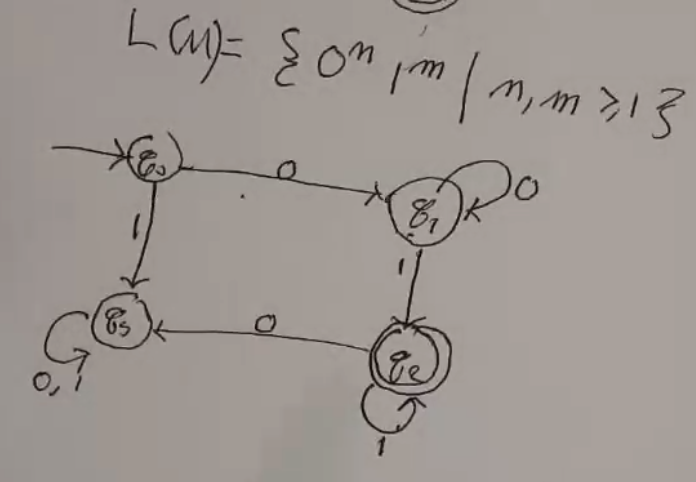 L(M) = { 0ⁿ 1ᵐ | n, m ≥ 1 }
q₀ 0 q₁ 0
1 1
q₃ 0 q₂
0, 1 1